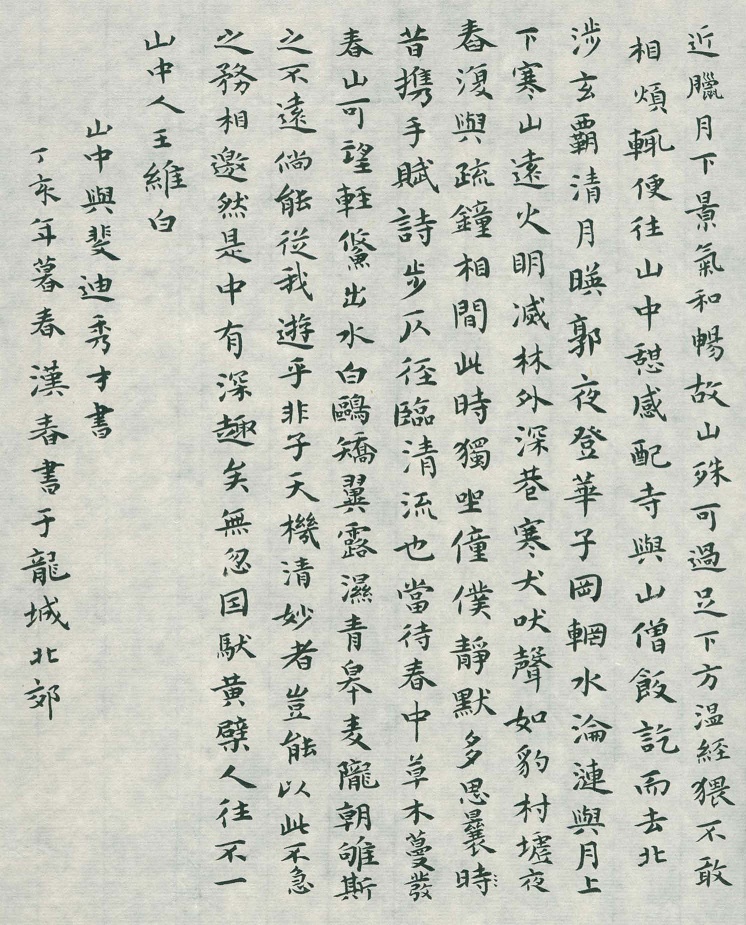 近臘月下景氣和暢故山殊可過足下方温經猥不敢
相煩輒便往山中憇感配寺與山僧飯訖而去北
涉玄覇清月暎郭夜登華子岡輞水淪漣與月上
下寒山遠火眀滅林外深巷寒犬吠聲如豹村墟夜
舂復與疏鐘相間此時獨坐僮僕靜默多思曩時
昔携手賦詩步仄徑臨清流也當待春中草木蔓發
春山可望輕鯈出水白鷗矯翼露濕青皋麦隴朝雊斯
之不遠倘能從我遊乎非子天機清妙者豈能以此不急
之務相邀然是中有深趣矣無忽因馱黄檗人往不一
山中人王維白
山中與斐迪秀才書
丁亥年暮春漢春書于龍城北郊